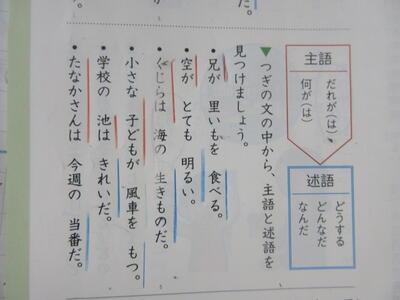 主語
だれが(は)
何が(は)
述語
どうする
どんなだ
なんだ
▼つぎの文の中から、主語と述語を
見つけましょう。
•兄が 里いもを 食べる。
•空が とても 明るい。
•くじらは 海の 生きものだ。
•小さな 子どもが 風車を もつ。
•学校の 池は きれいだ。
•たなかさんは 今週の 当番だ。